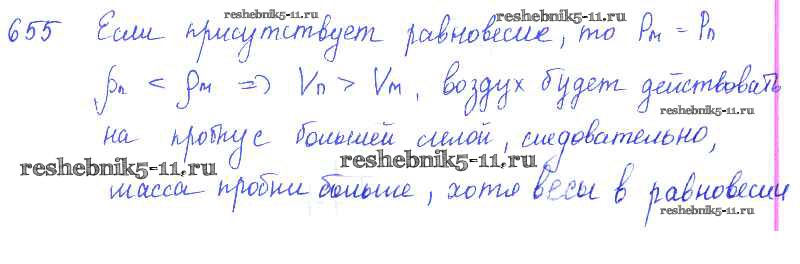 reshebnik5-11.ru reshebnik5-11.ru
655 Если присутствует равновесие, то Pм = Pп
ρп < ρм => Vп > Vм, воздух будет действовать
reshebnik5-11.ru
на пробку с большей силой, следовательно,
reshebnik5-11.ru reshebnik5-11.ru
масса пробки больше, хотя весы в равновесии
reshebnik5-11.ru